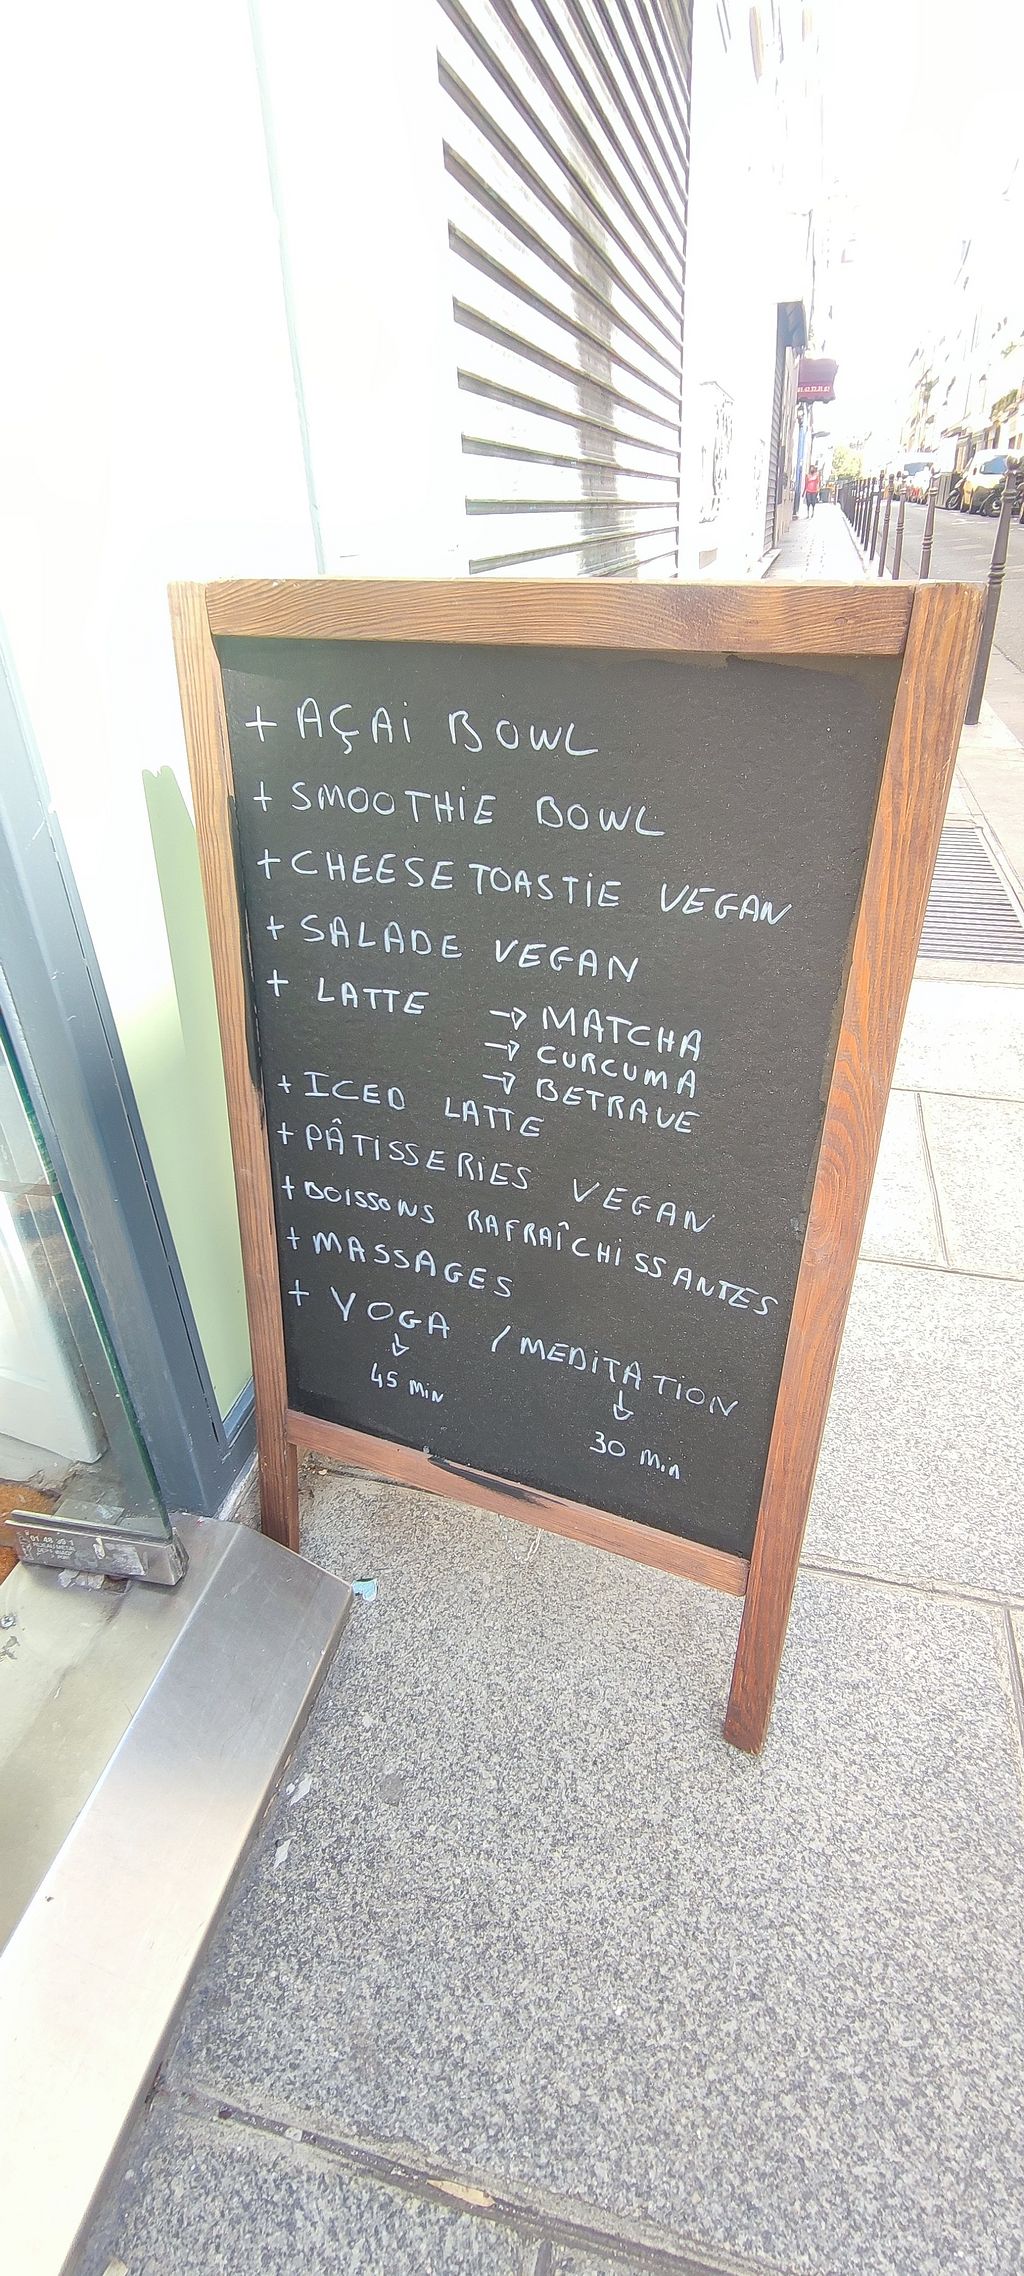 + AÇAi BOWL
+ SMOOTHiE BOWL
+ CHEESE TOASTiE VEGAN
+ SALADE VEGAN
+ LATTE → MATCHA
→ CURCUMA
→ BETRAVE
+ ICED LATTE
+ PÂTISSERiES VEGAN
+ BOISSONS RAFRAÎCHiSSANTES
+ MASSAGES
+ YOGA / MEDiTATiON
45 MiN
30 Min